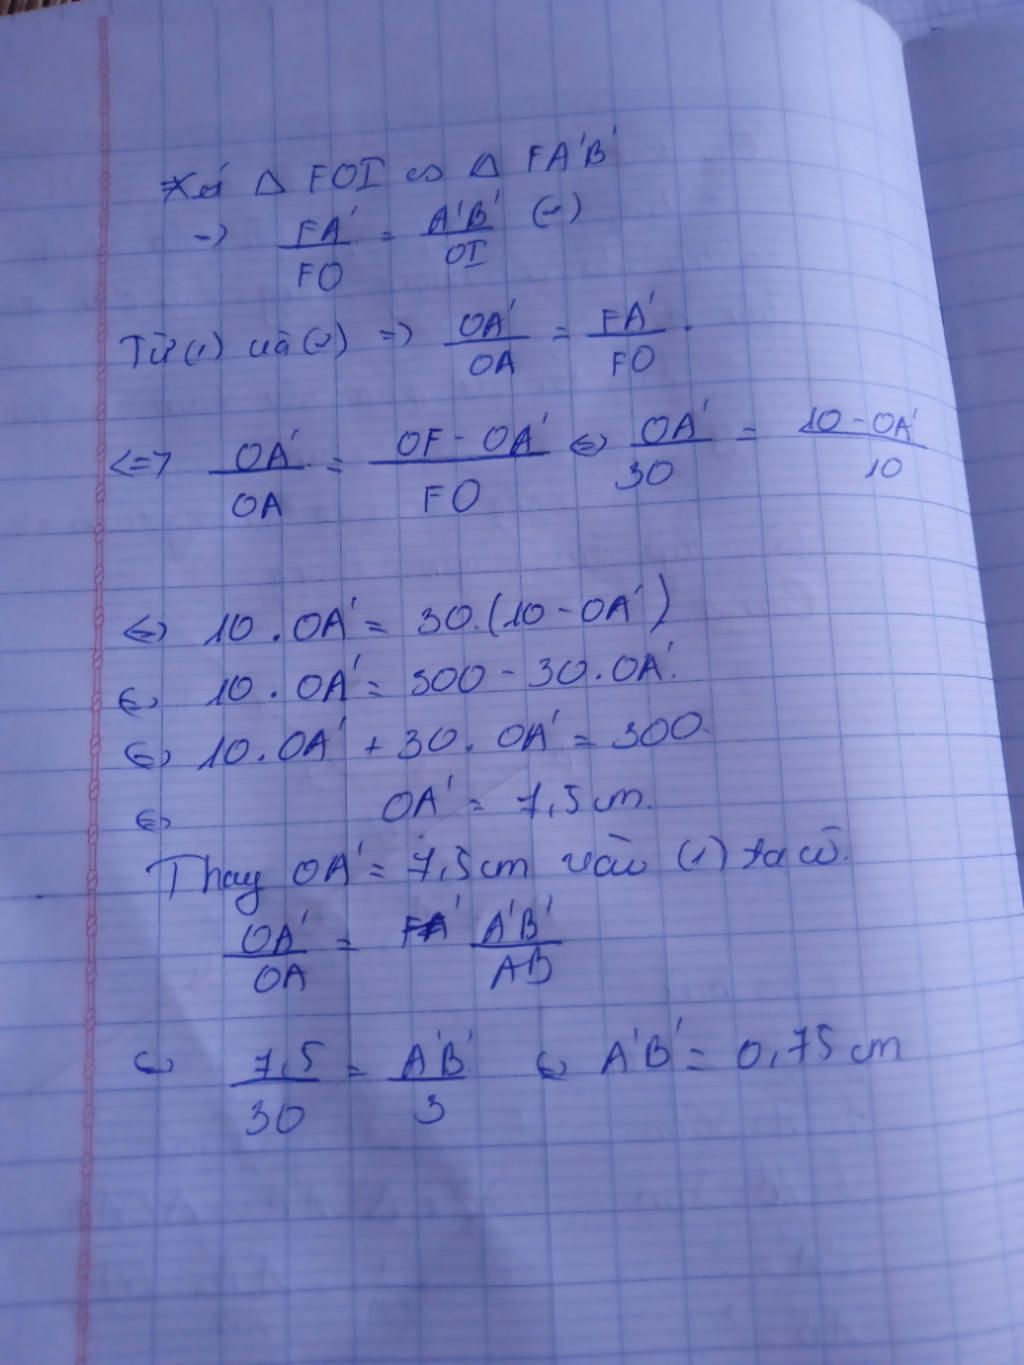 Xét Δ FOI ∽ Δ FA'B'
-> FA'/FO = A'B'/OI (2)
Từ (1) và (2) => OA'/OA = FA'/FO.
<=> OA'/OA = OF - OA'/FO <=> OA'/30 = 10 - OA'/10
<=> 10 . OA' = 30.(10 - OA')
<=> 10 . OA' = 300 - 30. OA'.
<=> 10. OA' + 30. OA' = 300.
<=> OA' = 7,5 cm.
Thay OA' = 7,5 cm vào (1) ta có.
OA'/OA = A'B'/AB
<=> 7,5/30 = A'B'/3 <=> A'B' = 0,75 cm